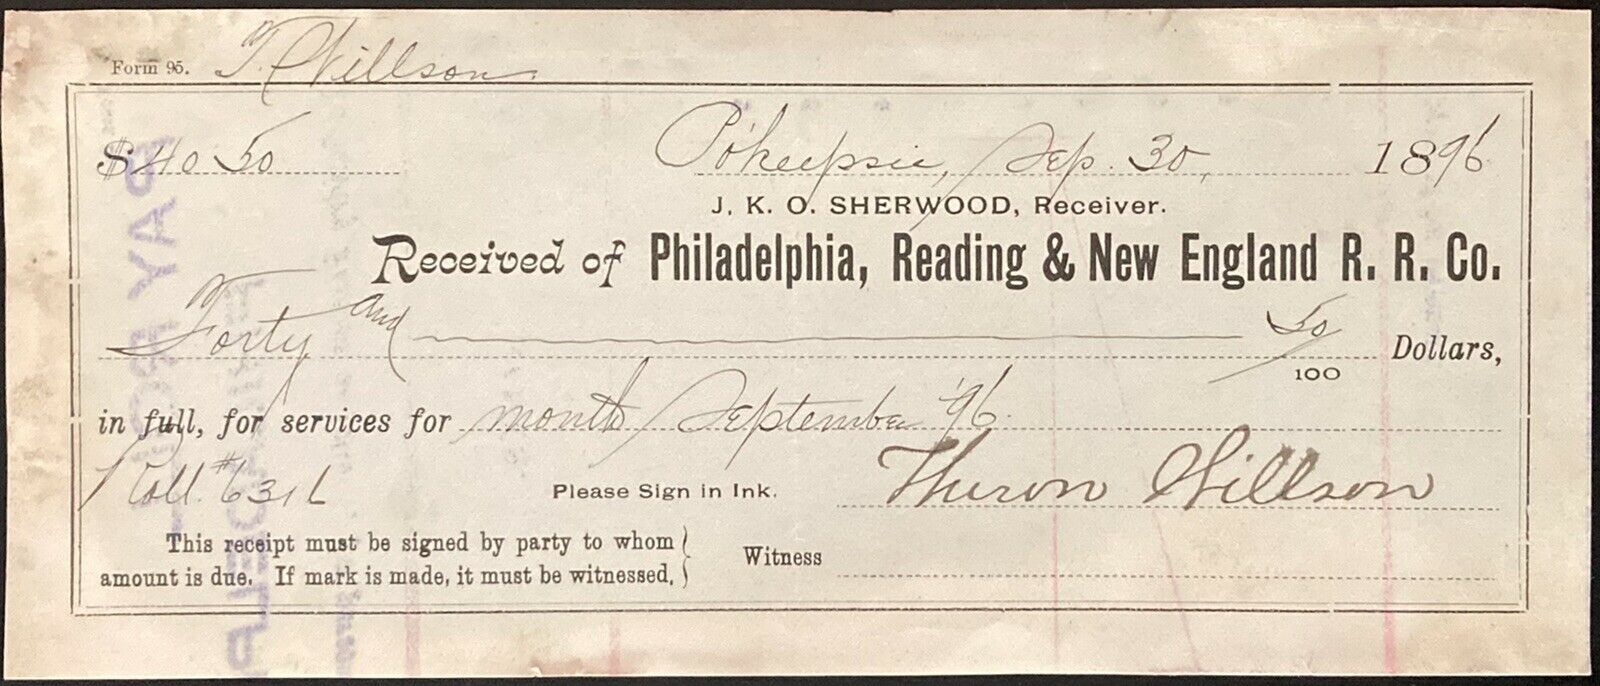 Form 95. T. Willson.
$40 50 Po'keepsie, Sep. 30, 1896
J. K. O. SHERWOOD, Receiver.
Received of Philadelphia, Reading & New England R. R. Co.
Forty and 50/100 Dollars,
in full, for services for month September '96.
#6311 Please Sign in Ink. Theron Willson
This receipt must be signed by party to whom
amount is due. If mark is made, it must be witnessed. Witness